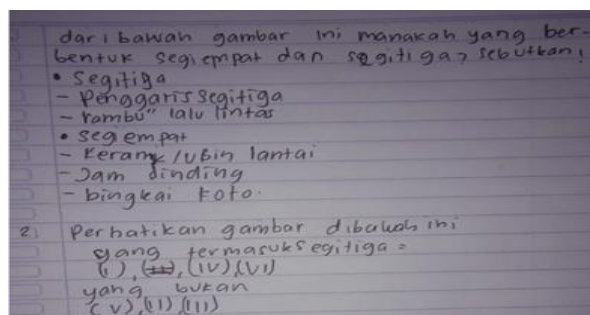 dari bawah gambar ini manakah yang ber-
bentuk segiempat dan segitiga, sebutkan!
• Segitiga
- Penggaris segitiga
- rambu" lalu lintas
• segempat
- keramk/ubin lantai
- Jam dinding
- bingkai Foto.
2) Perhatikan gambar dibawah ini
yang termasuk segitiga =
(i), (IV), (VI)
yang bukan
(V), (II), (III)